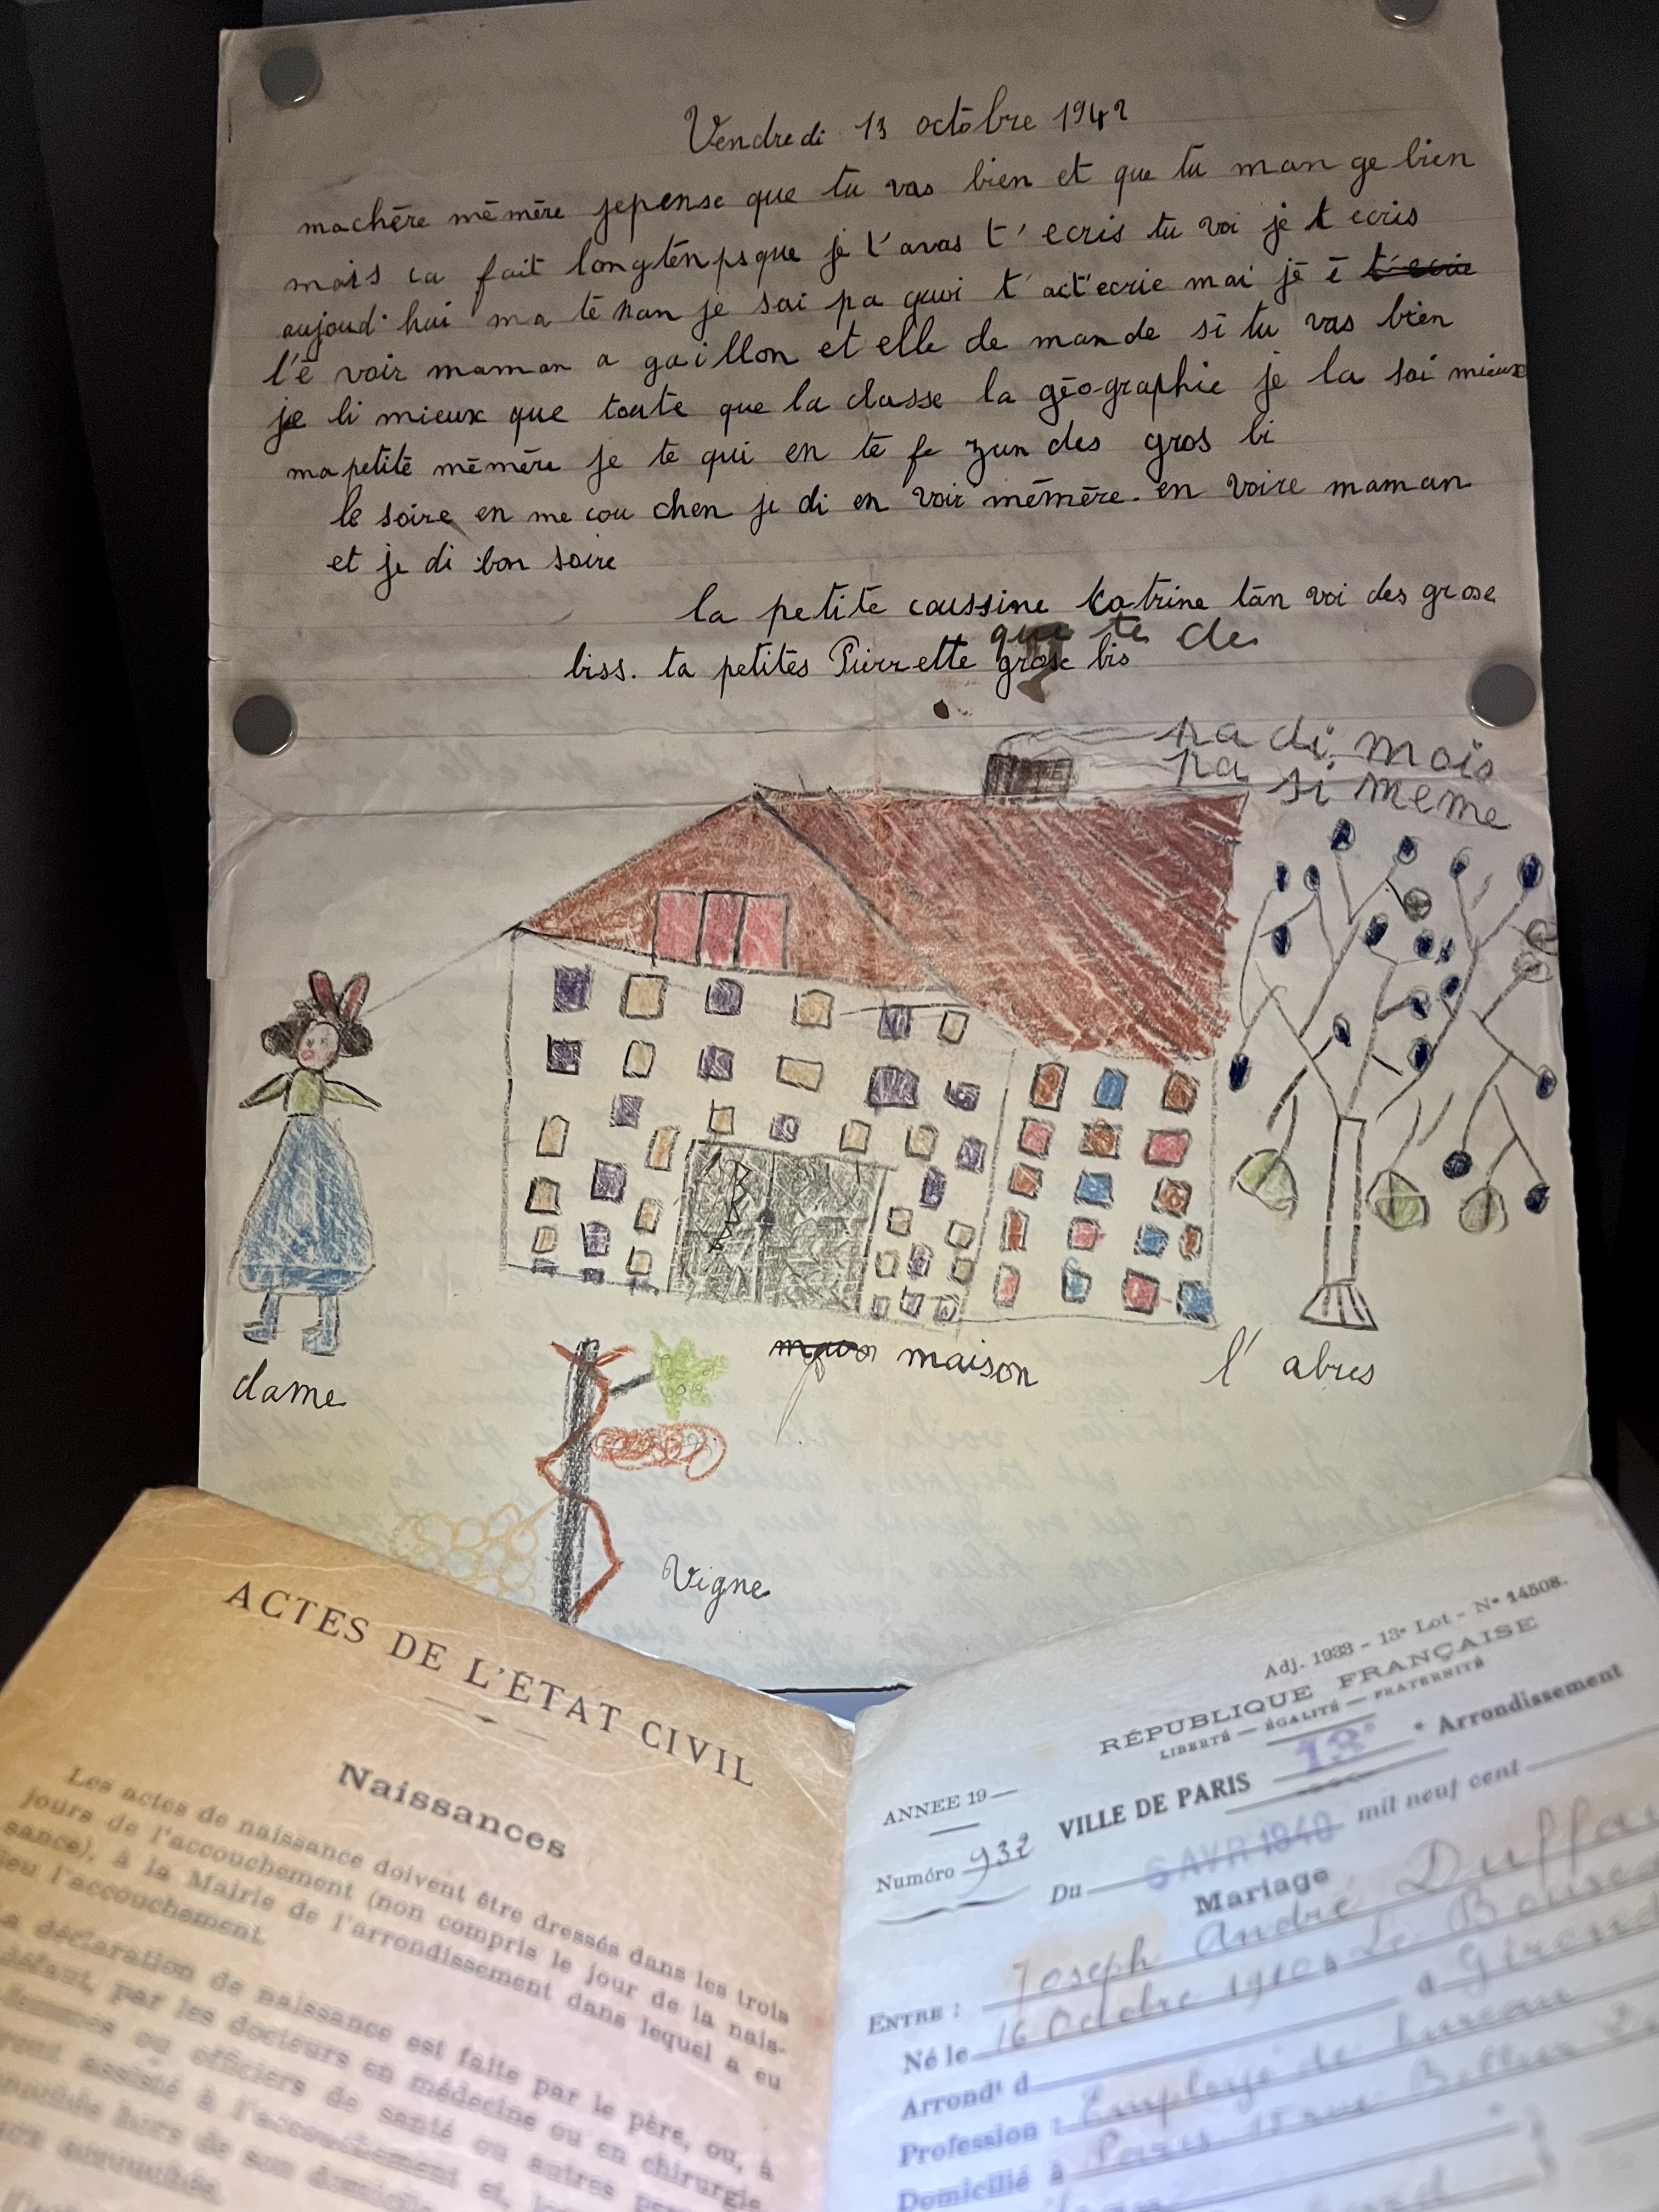 Vendredi 13 octobre 1942
machère mémère jepense que tu vas bien et que tu man ge bien
mais ca fait longtenps que je t'avas t'ecris tu voi je t ecris
aujoud'hui ma te nan je sai pa quoi t'act'ecrie mai je é t'ecrie
l'é voir maman a gaillon et elle de mande si tu vas bien
je li mieux que toute que la classe la géographie je la sai mieux
ma petite mémère je te qui en te fe zan des gros bi
le soire en me cou chen je di en voir mémère. en voire maman
et je di bon soire
la petite coussine Katrine tan voi des grose
que te de
biss. ta petites Pierrette grose bis
pa di mois
pa si meme
dame
maison
l'abres
Vigne
ACTES DE L'ÉTAT CIVIL
Naissances
Les actes de naissance doivent être dressés dans les trois
jours de l'accouchement (non compris le jour de la nais-
sance), à la Mairie de l'arrondissement dans lequel a eu
lieu l'accouchement.
La déclaration de naissance est faite par le père, ou, à
défaut, par les docteurs en médecine ou en chirurgie,
femmes ou officiers de santé ou autres
assisté à l'accouchement et,
hors de son domicile
Adj. 1933 - 13e Lot - No 14508.
RÉPUBLIQUE FRANÇAISE
LIBERTÉ — ÉGALITÉ — FRATERNITÉ
VILLE DE PARIS 13e Arrondissement
ANNÉE 19
Numéro 932
Du 6 AVR 1940 mil neuf cent
Mariage
ENTRE : Joseph André
Né le 16 Octobre 1910 à Le
Arrondt d
Profession : Employé de bureau
Domicilié à Paris 15 rue